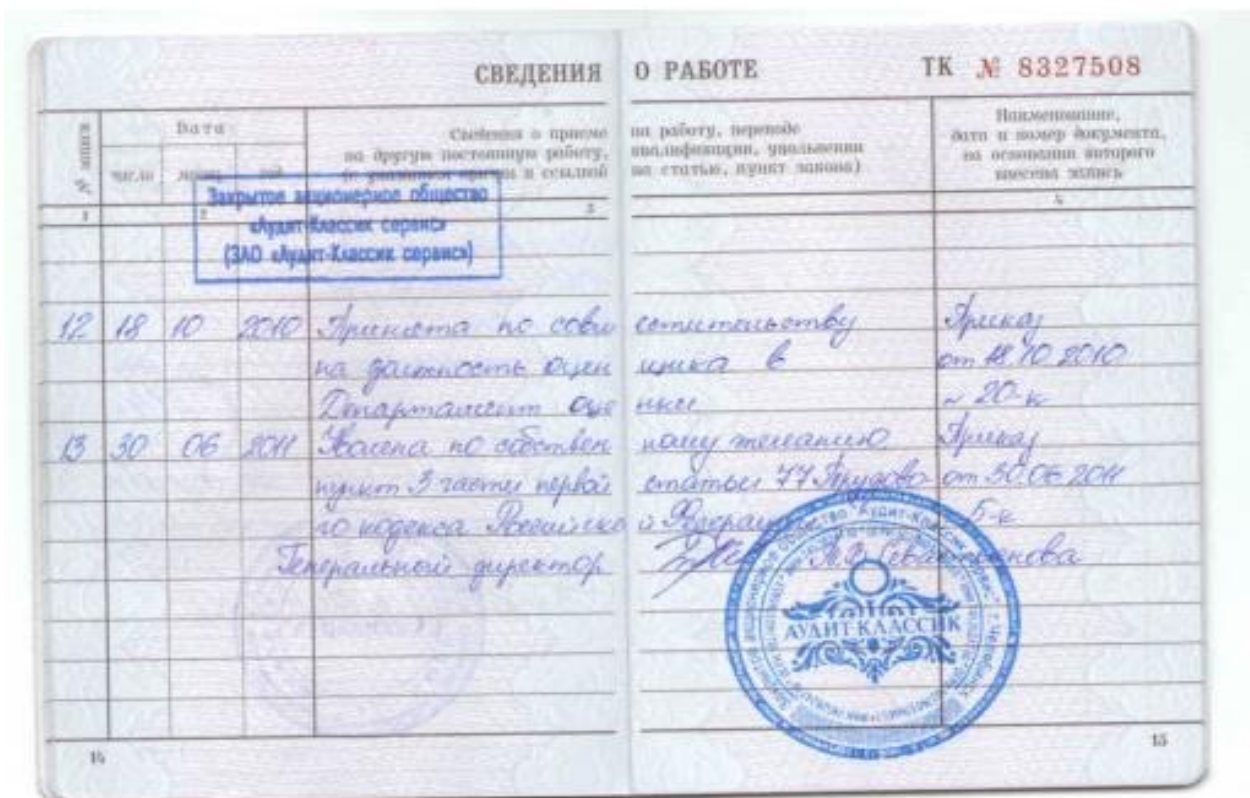 СВЕДЕНИЯ О РАБОТЕ
ТК № 8327508
№ записи
Дата
число
Сведения о приеме на работу, переводе
на другую постоянную работу, квалификации, увольнении
(с указанием причин и ссылкой на статью, пункт закона)
Наименование,
дата и номер документа,
на основании которого
внесена запись
1 2 3 4
Закрытое акционерное общество
«Аудит-Классик сервис»
(ЗАО «Аудит-Классик сервис»)
12 18 10 2010 Принята по совместительству Приказ
на должность оценщика в от 18.10.2010
Департамент оценки № 20-к
13 30 06 2011 Уволена по собственному желанию Приказ
пункт 3 части первой статьи 77 Трудово- от 30.06.2011
го кодекса Российской Федерации 5-к
Генеральный директор
АУДИТ КЛАССИК
14 15